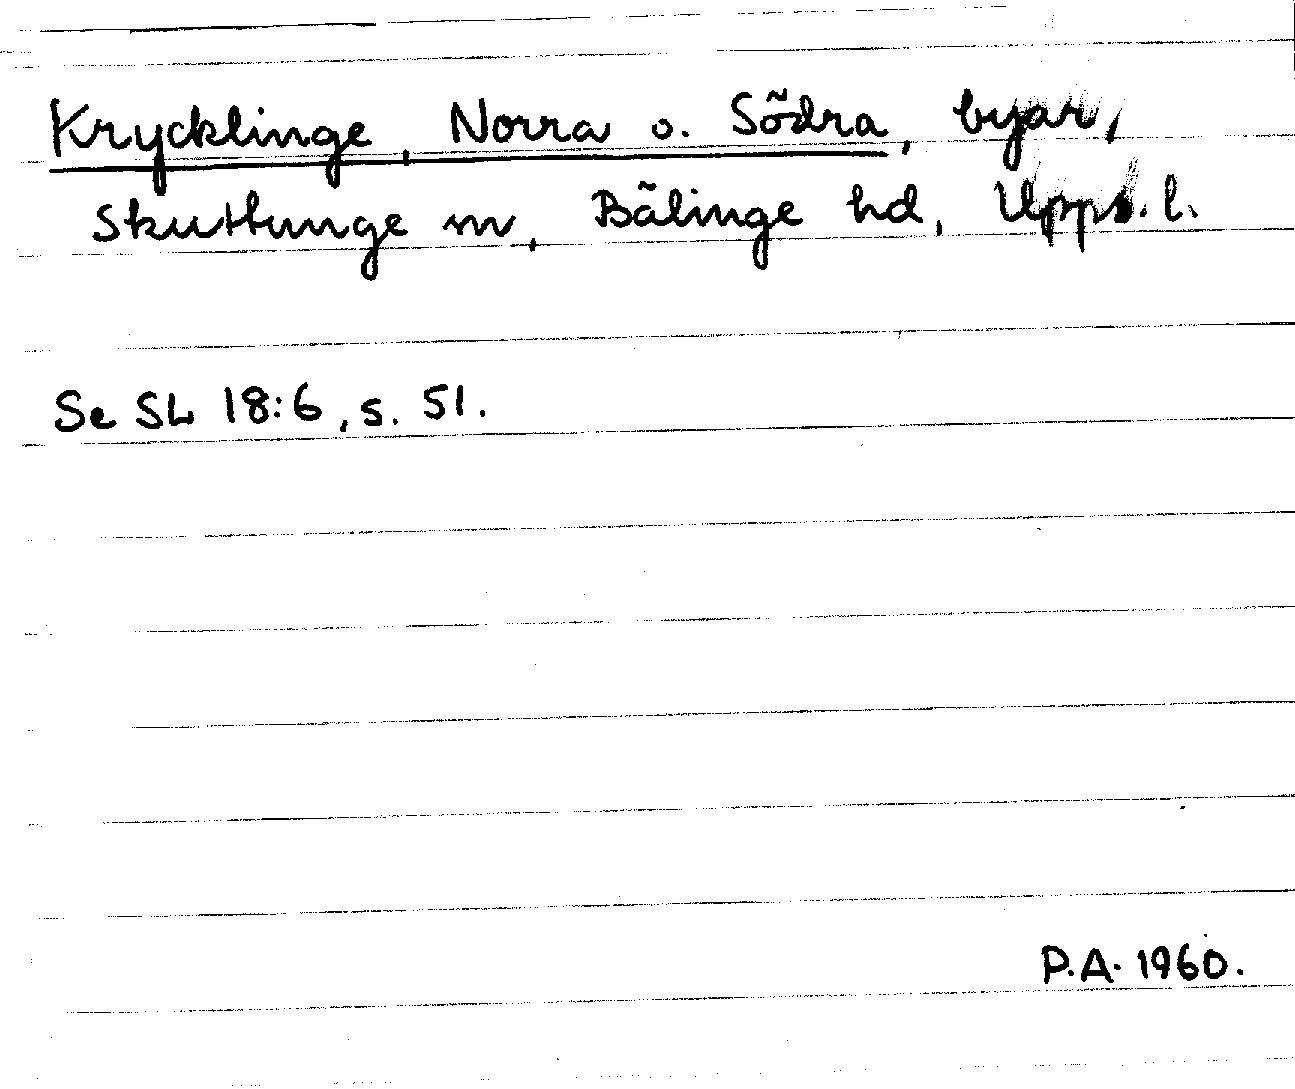 Krycklinge, Norra o. Södra, byar,
Skuttunge sn, Bälinge hd, Upps. l.
Se SL 18:6, s. 51.
P.A. 1960.